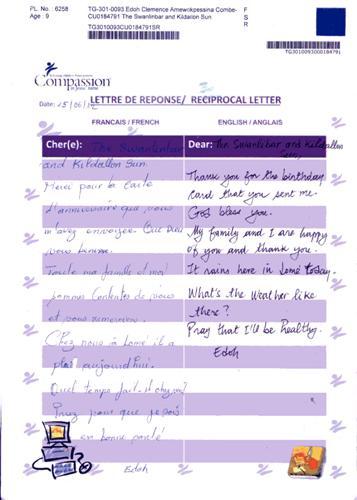 PL. No. : 6258
Age : 9
TG-301-0093 Edoh Clemence Amewokpessina Combe-
CU0184791 The Swanlinbar and Kildallon Sun
F
S
R
TG3010093CU0184791SR
TG30100930000184791
Compassion
in Jesus' name
LETTRE DE REPONSE/ RECIPROCAL LETTER
Date:
FRANCAIS / FRENCH
ENGLISH / ANGLAIS
Cher(e): The Swanlinbar
and Kildallon Sun.
Merci pour la carte
d'anniversaire que vous
m'avez envoyée. Que Dieu
vous bénisse.
Toute ma famille et moi
sommes contents de vous
et vous remercions.
Chez nous à Lomé il a
plu aujourd'hui.
Quel temps fait-il chez vous?
Priez pour que je sois
en bonne santé
Edoh
Dear: The Swanlibar and Kildallon
Thank you for the birthday
card that you sent me.
God bless you.
My family and I are happy
of you and thank you.
It rains here in Lomé today.
What's the weather like
there?
Pray that I'll be healthy.
Edoh